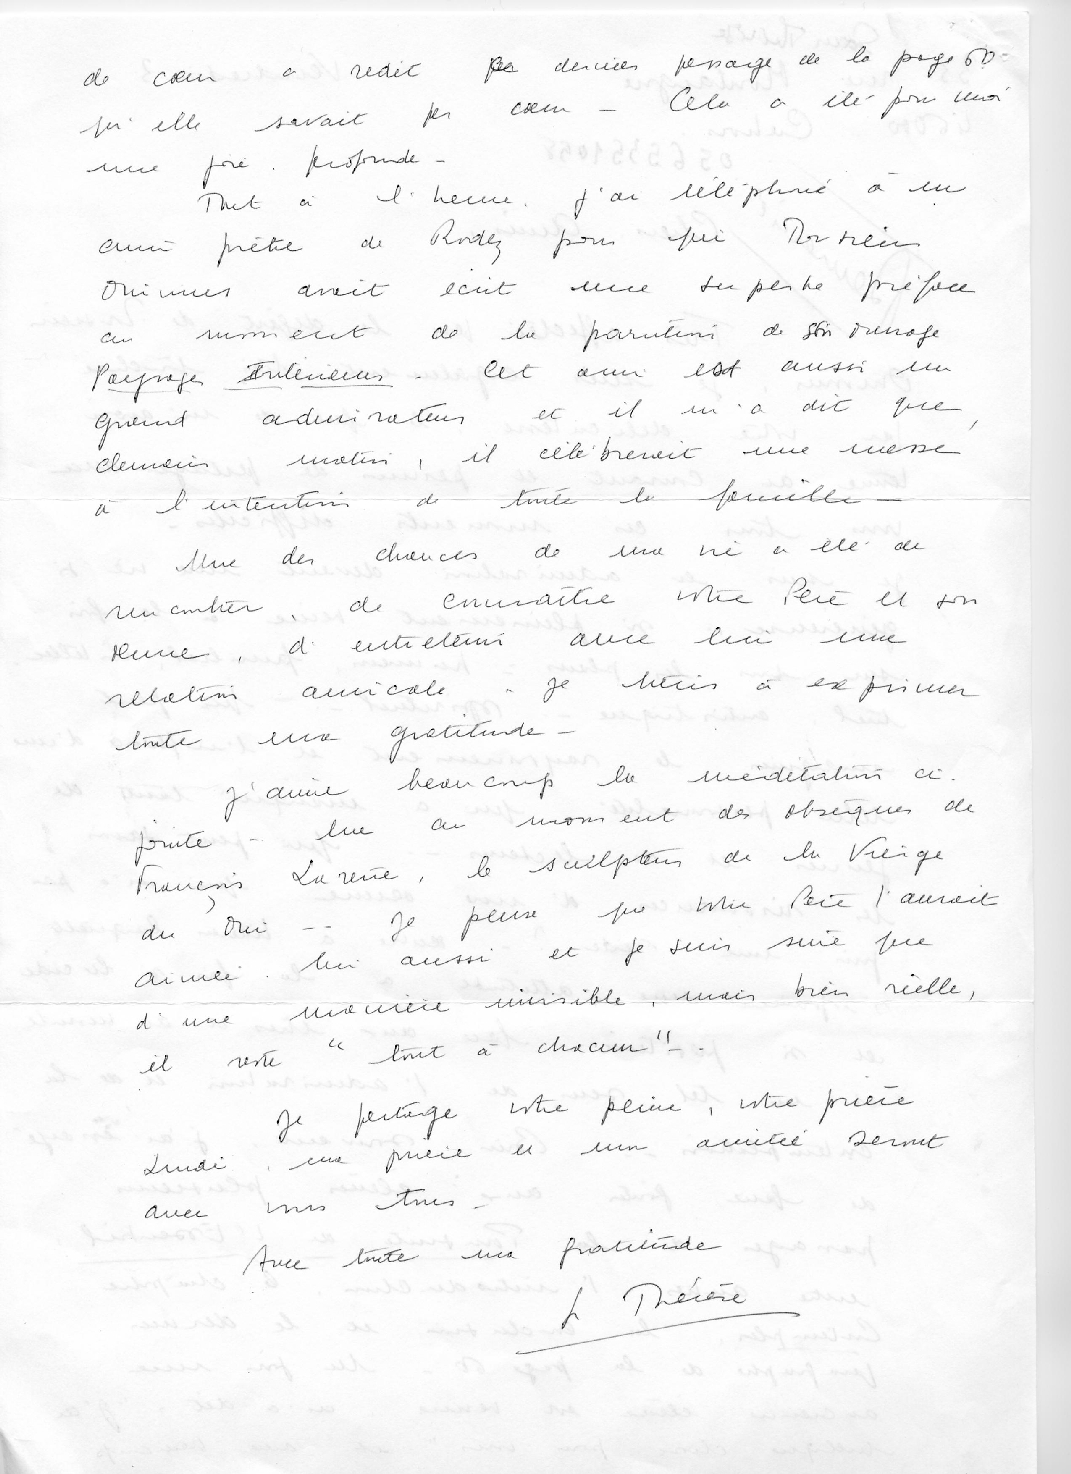 de cœur a redit le dernier passage de la page 60
qu'elle savait par cœur - Cela a été pour moi
une joie profonde -
Tout à l'heure, j'ai téléphoné à un
ami prêtre de Rodez pour qui Monsieur
Onimus avait écrit une superbe préface
au moment de la parution de son ouvrage
Paysages Intérieurs. Cet ami est aussi un
grand admirateur et il m'a dit que,
demain matin, il célèbrerait une messe
à l'intention de toute la famille -
Une des chances de ma vie a été de
rencontrer, de connaître votre Père et son
œuvre, d'entretenir avec lui une
relation amicale. Je tiens à exprimer
toute ma gratitude -
J'aime beaucoup la méditation ci-
jointe - lue au moment des obsèques de
François Larene, le sculpteur de la Vierge
du Oui -- Je pense que votre Père l'aurait
aimée lui aussi et je suis sûre que
d'une manière invisible, mais bien réelle,
il reste "tout à chacun" -.
Je partage votre peine, votre prière
Lundi, ma prière et mon amitié seront
avec vous tous -
Avec toute ma gratitude
Sr Thérèse